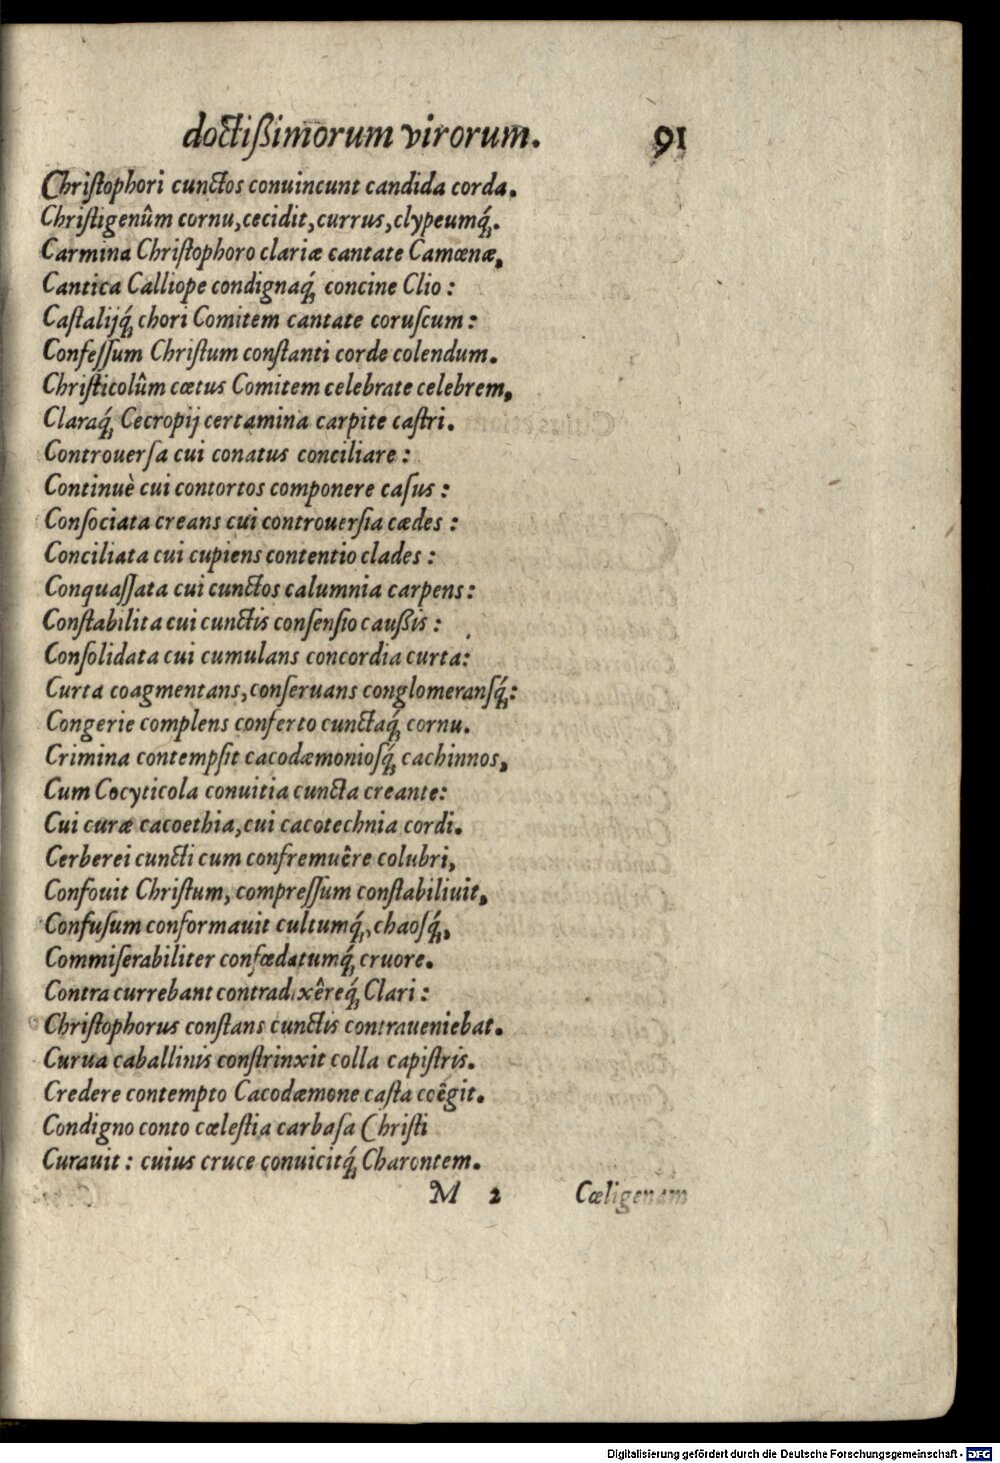 doctißimorum virorum. 91
Christophori cunctos conuincunt candida corda.
Christigenûm cornu, cecidit, currus, clypeumq́;.
Carmina Christophoro clariæ cantate Camœnæ,
Cantica Calliope condignaq́; concine Clio:
Castalijq́; chori Comitem cantate coruscum:
Confessum Christum constanti corde colendum.
Christicolûm cœtus Comitem celebrate celebrem,
Claraq́; Cecropij certamina carpite castri.
Controuersa cui conatus conciliare:
Continuè cui contortos componere casus:
Consociata creans cui controuersia cædes:
Conciliata cui cupiens contentio clades:
Conquassata cui cunctos calumnia carpens:
Constabilita cui cunctis consensio caußis:
Consolidata cui cumulans concordia curta:
Curta coagmentans, conseruans conglomeransq́;:
Congerie complens conferto cunctaq́; cornu.
Crimina contempsit cacodæmoniosq́; cachinnos,
Cum Cocyticola conuitia cuncta creante:
Cui curæ cacoethia, cui cacotechnia cordi.
Cerberei cuncti cum confremuêre colubri,
Confouit Christum, compressum constabiliuit,
Confusum conformauit cultumq́;, chaosq́;,
Commiserabiliter confœdatumq́; cruore.
Contra currebant contradixêreq́; Clari:
Christophorus constans cunctis contraueniebat.
Curua caballinis constrinxit colla capistris.
Credere contempto Cacodæmone casta coêgit.
Condigno conto cœlestia carbasa Christi
Curauit: cuius cruce conuicitq́; Charontem.
M 2 Cœligenam
Digitalisierung gefördert durch die Deutsche Forschungsgemeinschaft - DFG